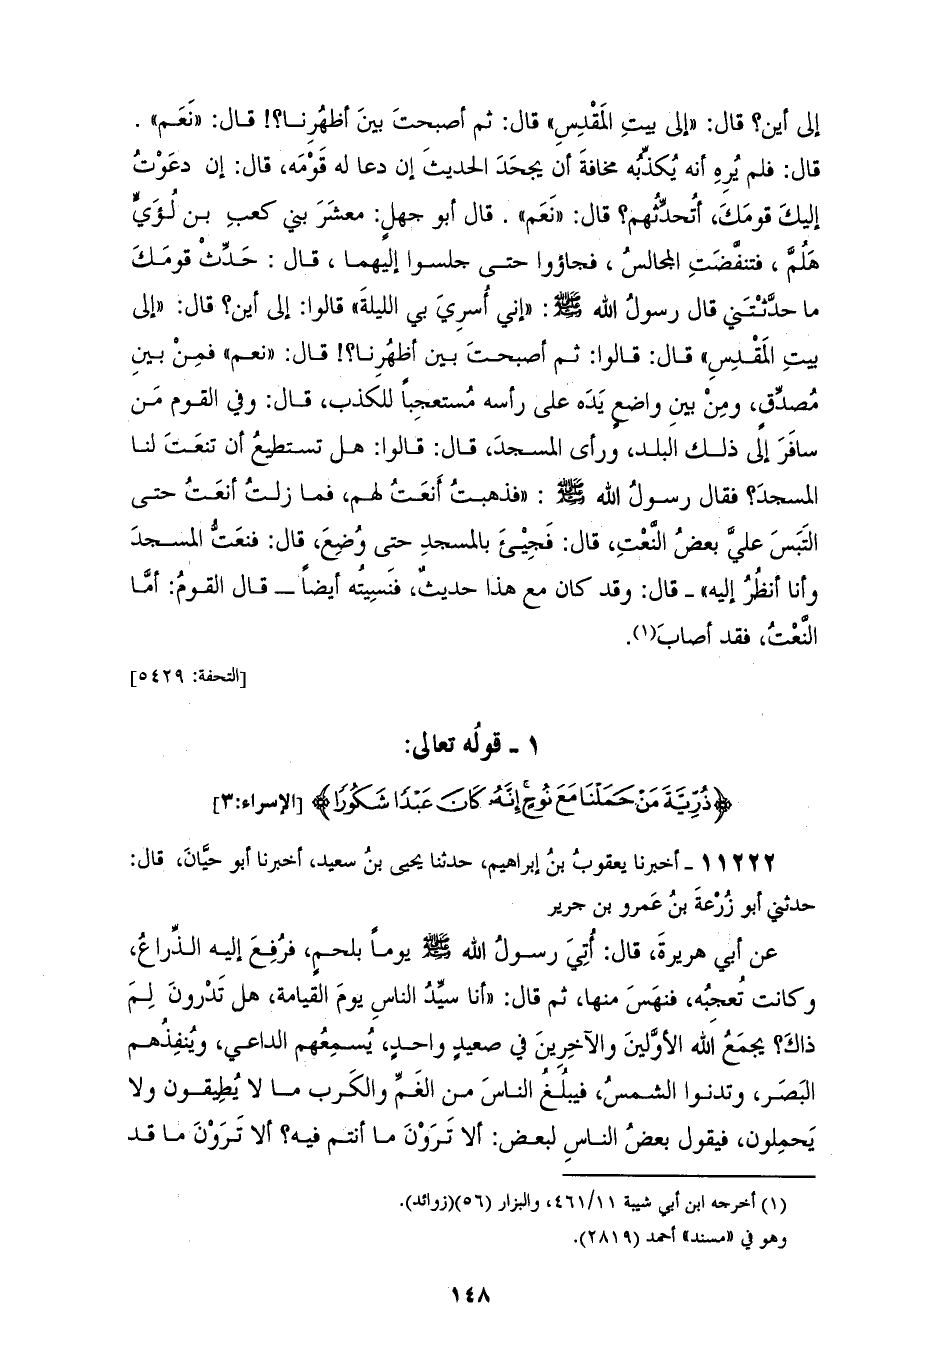 إلى أين؟ قال: «إلى بيتِ المَقْدِسِ» قال: ثم أصبحتَ بينَ أظهُرِنا؟! قال: «نَعَم» .
قال: فلم يُرِهِ أنه يُكذِّبُه مخافةَ أن يجحَدَ الحديثَ إن دعا له قَوْمَه، قال: إن دعَوْتُ
إليكَ قومَكَ، أتُحدِّثُهم؟ قال: «نَعَم» . قال أبو جهلٍ: معشَرَ بني كعبِ بن لُؤَيٍّ
هَلُمَّ ، فتنفَّضَتِ المجالسُ ، فجاؤوا حتى جلسوا إليهما ، قال : حَدِّثْ قومَكَ
ما حدَّثْتَني قال رسولُ الله ﷺ : «إني أُسرِيَ بي الليلةَ» قالوا: إلى أين؟ قال: «إلى
بيتِ المَقْدِسِ» قال: قالوا: ثم أصبحتَ بين أظهُرِنا؟! قال: «نعم» فمِنْ بينِ
مُصدِّقٍ، ومِنْ بين واضعٍ يَدَه على رأسه مُستعجباً للكذب، قال: وفي القوم مَن
سافَرَ إلى ذلك البلد، ورأى المسجدَ، قال: قالوا: هل تستطيعُ أن تنعَتَ لنا
المسجدَ؟ فقال رسولُ الله ﷺ : «فذهبتُ أَنعَتُ لهم، فما زلتُ أنعَتُ حتى
التَبَسَ عليَّ بعضُ النَّعْتِ، قال: فَجِيْئَ بالمسجدِ حتى وُضِعَ، قال: فنعَتُّ المسجدَ
وأنا أنظُرُ إليه» ـ قال: وقد كان مع هذا حديثٌ، فَنَسِيتُه أيضاً ـ قال القومُ: أمَّا
النَّعْتُ، فقد أصابَ(١).
[التحفة: ٥٤٢٩]
١ ـ قولُه تعالى:
﴿ذُرِّيَّةَ مَنْ حَمَلْنَا مَعَ نُوحٍ إِنَّهُ كَانَ عَبْدًا شَكُورًا﴾ [الإسراء:٣]
١١٢٢٢ ـ أخبرنا يعقوبُ بنُ إبراهيم، حدثنا يحيى بنُ سعيد، أخبرنا أبو حيَّانَ، قال:
حدثني أبو زُرْعةَ بنُ عَمرو بن جرير
عن أبي هريرةَ، قال: أُتِيَ رسولُ الله ﷺ يوماً بلحمٍ، فرُفِعَ إليه الذِّراعُ،
وكانت تُعجبُه، فنهَسَ منها، ثم قال: «أنا سيِّدُ الناسِ يومَ القيامة، هل تَدْرونَ لِمَ
ذاكَ؟ يجمَعُ الله الأوَّلينَ والآخِرِينَ في صعيدٍ واحدٍ، يُسمِعُهم الداعي، ويُنفِذُهم
البَصَر، وتدنوا الشمسُ، فيبلُغُ الناسَ من الغَمِّ والكَرب ما لا يُطِيقون ولا
يَحمِلون، فيقول بعضُ الناسِ لبعض: ألا تَرَوْنَ ما أنتم فيه؟ ألا تَرَوْنَ ما قد
(١) أخرجه ابن أبي شيبة ٤٦١/١١، والبزار (٥٦)(زوائد).
وهو في «مسند» أحمد (٢٨١٩).
١٤٨